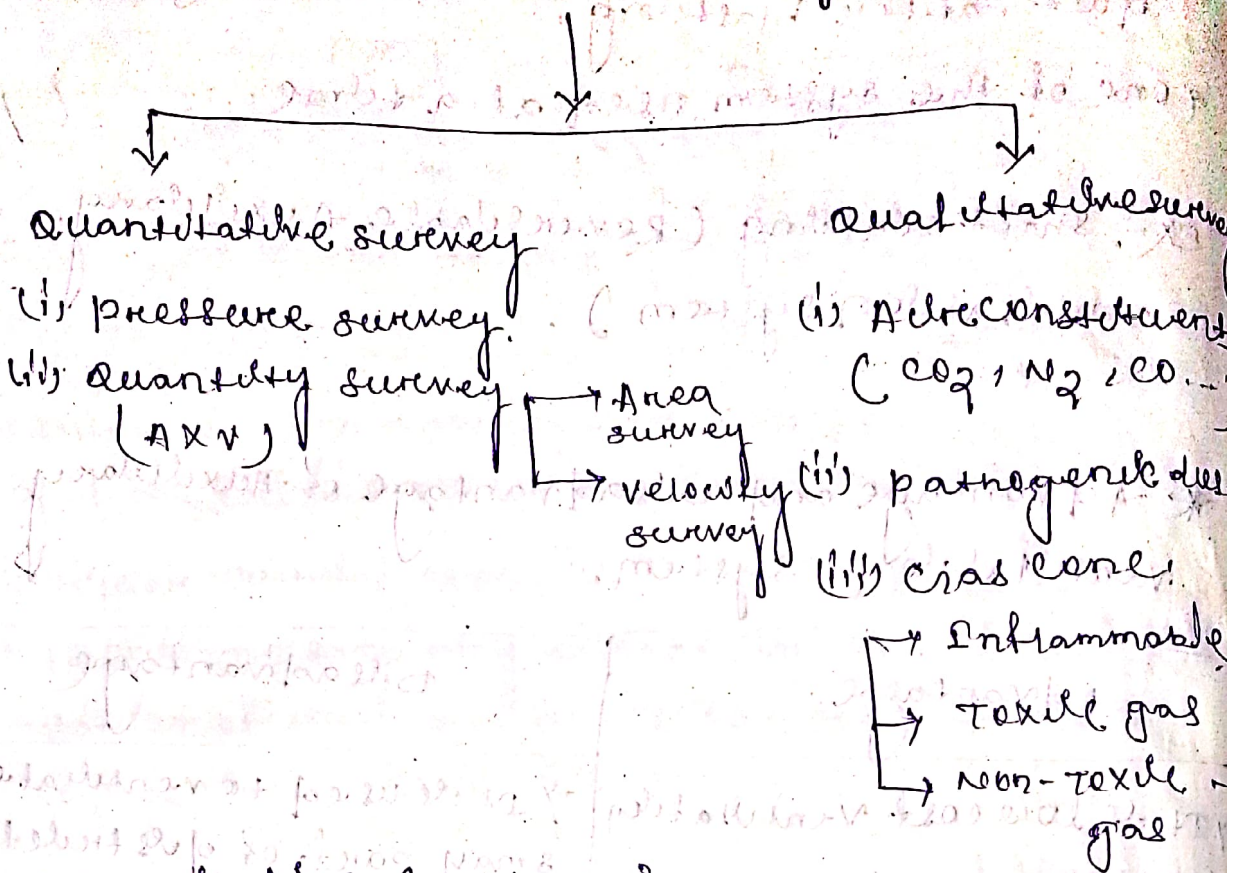 Quantitative survey
(i) pressure survey.
(ii) Quantity survey
(A x V)
→ Area
survey
→ velocity
survey
Qualitative surve
(i) Air constituent
(CO2, N2, CO...
(ii) pathogenic dus
(iii) Gas conc.
→ Inflammable
→ Toxic gas
→ Non-Toxic -
gas